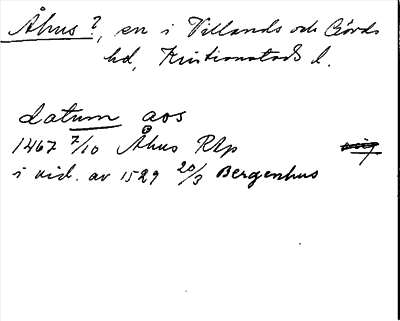 Åhus?, en i Villands och Gärds
hd, Kristianstads l.
datum aos
1467 7/10 Åhus RAp
i vid. av 1529 20/3 Bergenhus